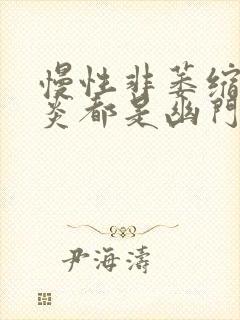 慢性非萎缩
炎都是幽门
尹海濤